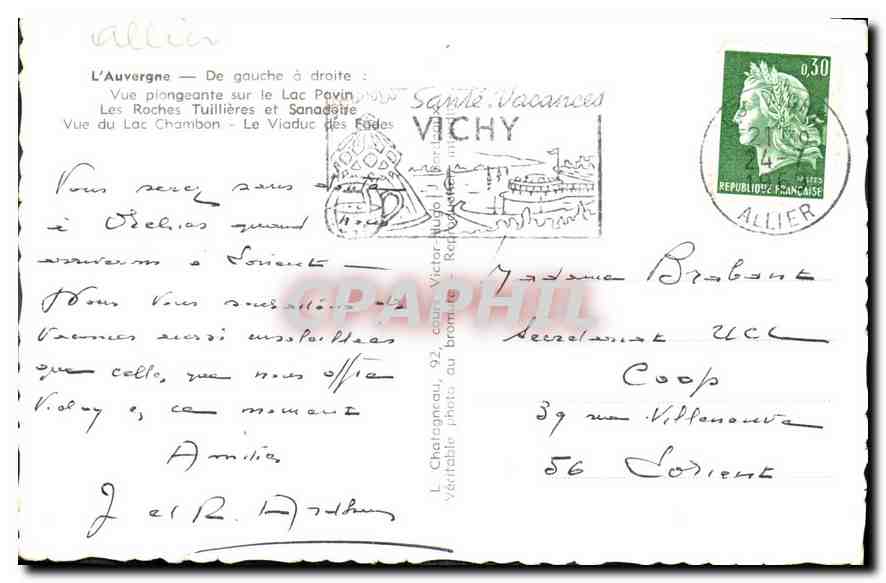 allier
L'Auvergne — De gauche à droite :
Vue plongeante sur le Lac Pavin
Les Roches Tuillières et Sanadoire
Vue du Lac Chambon - Le Viaduc des Fades
Santé. Vacances
VICHY
0,30
REPUBLIQUE FRANÇAISE
24
ALLIER
Vous serez sans doute
à quand
arriverons à Lorient —
Nous vous souhaitons des
vacances aussi ensoleillées
que celles, que nous offre
Vichy en ce moment
Amitiés
J et R.
L. Chatagneau, 92, cours Victor-Hugo
Véritable photo au bromure - Reproduction
CPAPHIL
Madame Brabant
Secrétariat UCL
Coop
39 rue Villeneuve
56 Lorient